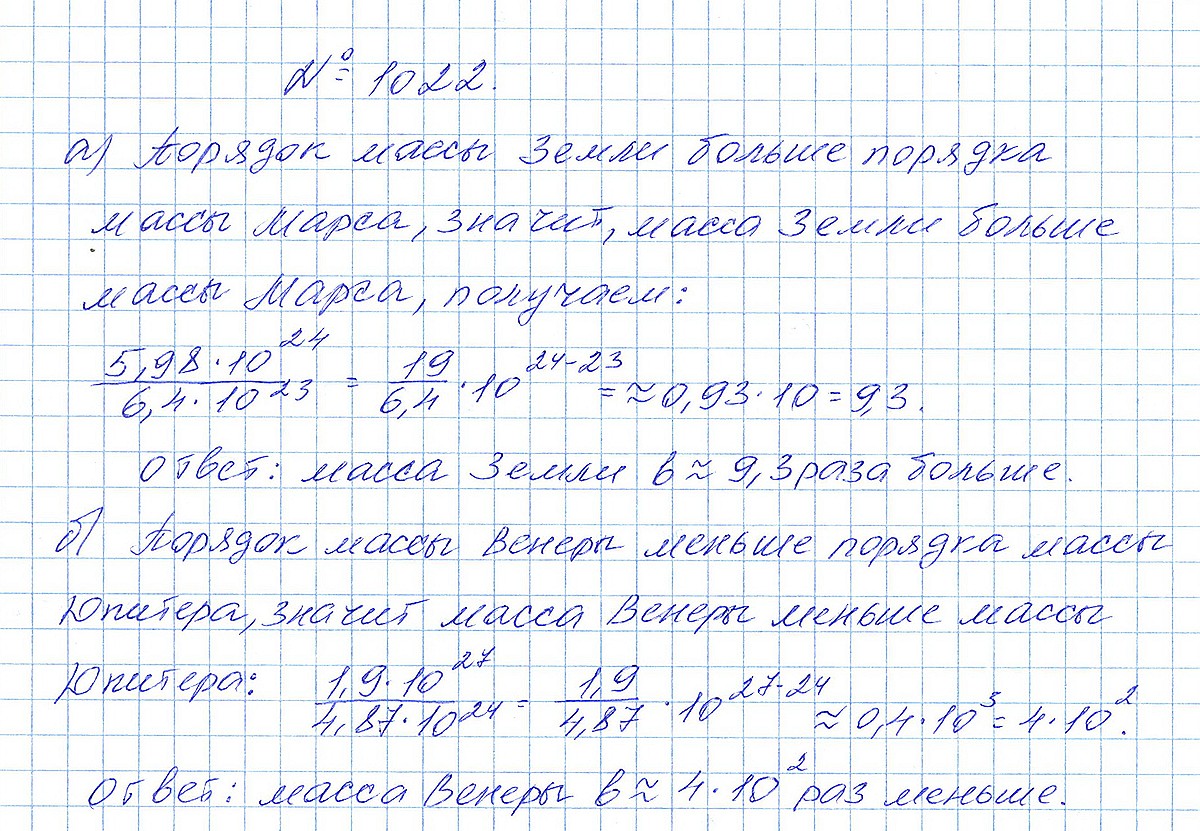 № 1022.
а) Порядок массы Земли больше порядка
массы Марса, значит, масса Земли больше
массы Марса, получаем:
5,98·10^24 / 6,4·10^23 = 19/6,4 · 10^24-23 = ≈ 0,93·10 = 9,3.
Ответ: масса Земли в ≈ 9,3 раза больше.
б) Порядок массы Венеры меньше порядка массы
Юпитера, значит масса Венеры меньше массы
Юпитера: 1,9·10^27 / 4,87·10^24 = 1,9/4,87 · 10^27-24 ≈ 0,4·10^3 = 4·10^2.
Ответ: масса Венеры в ≈ 4·10^2 раз меньше.